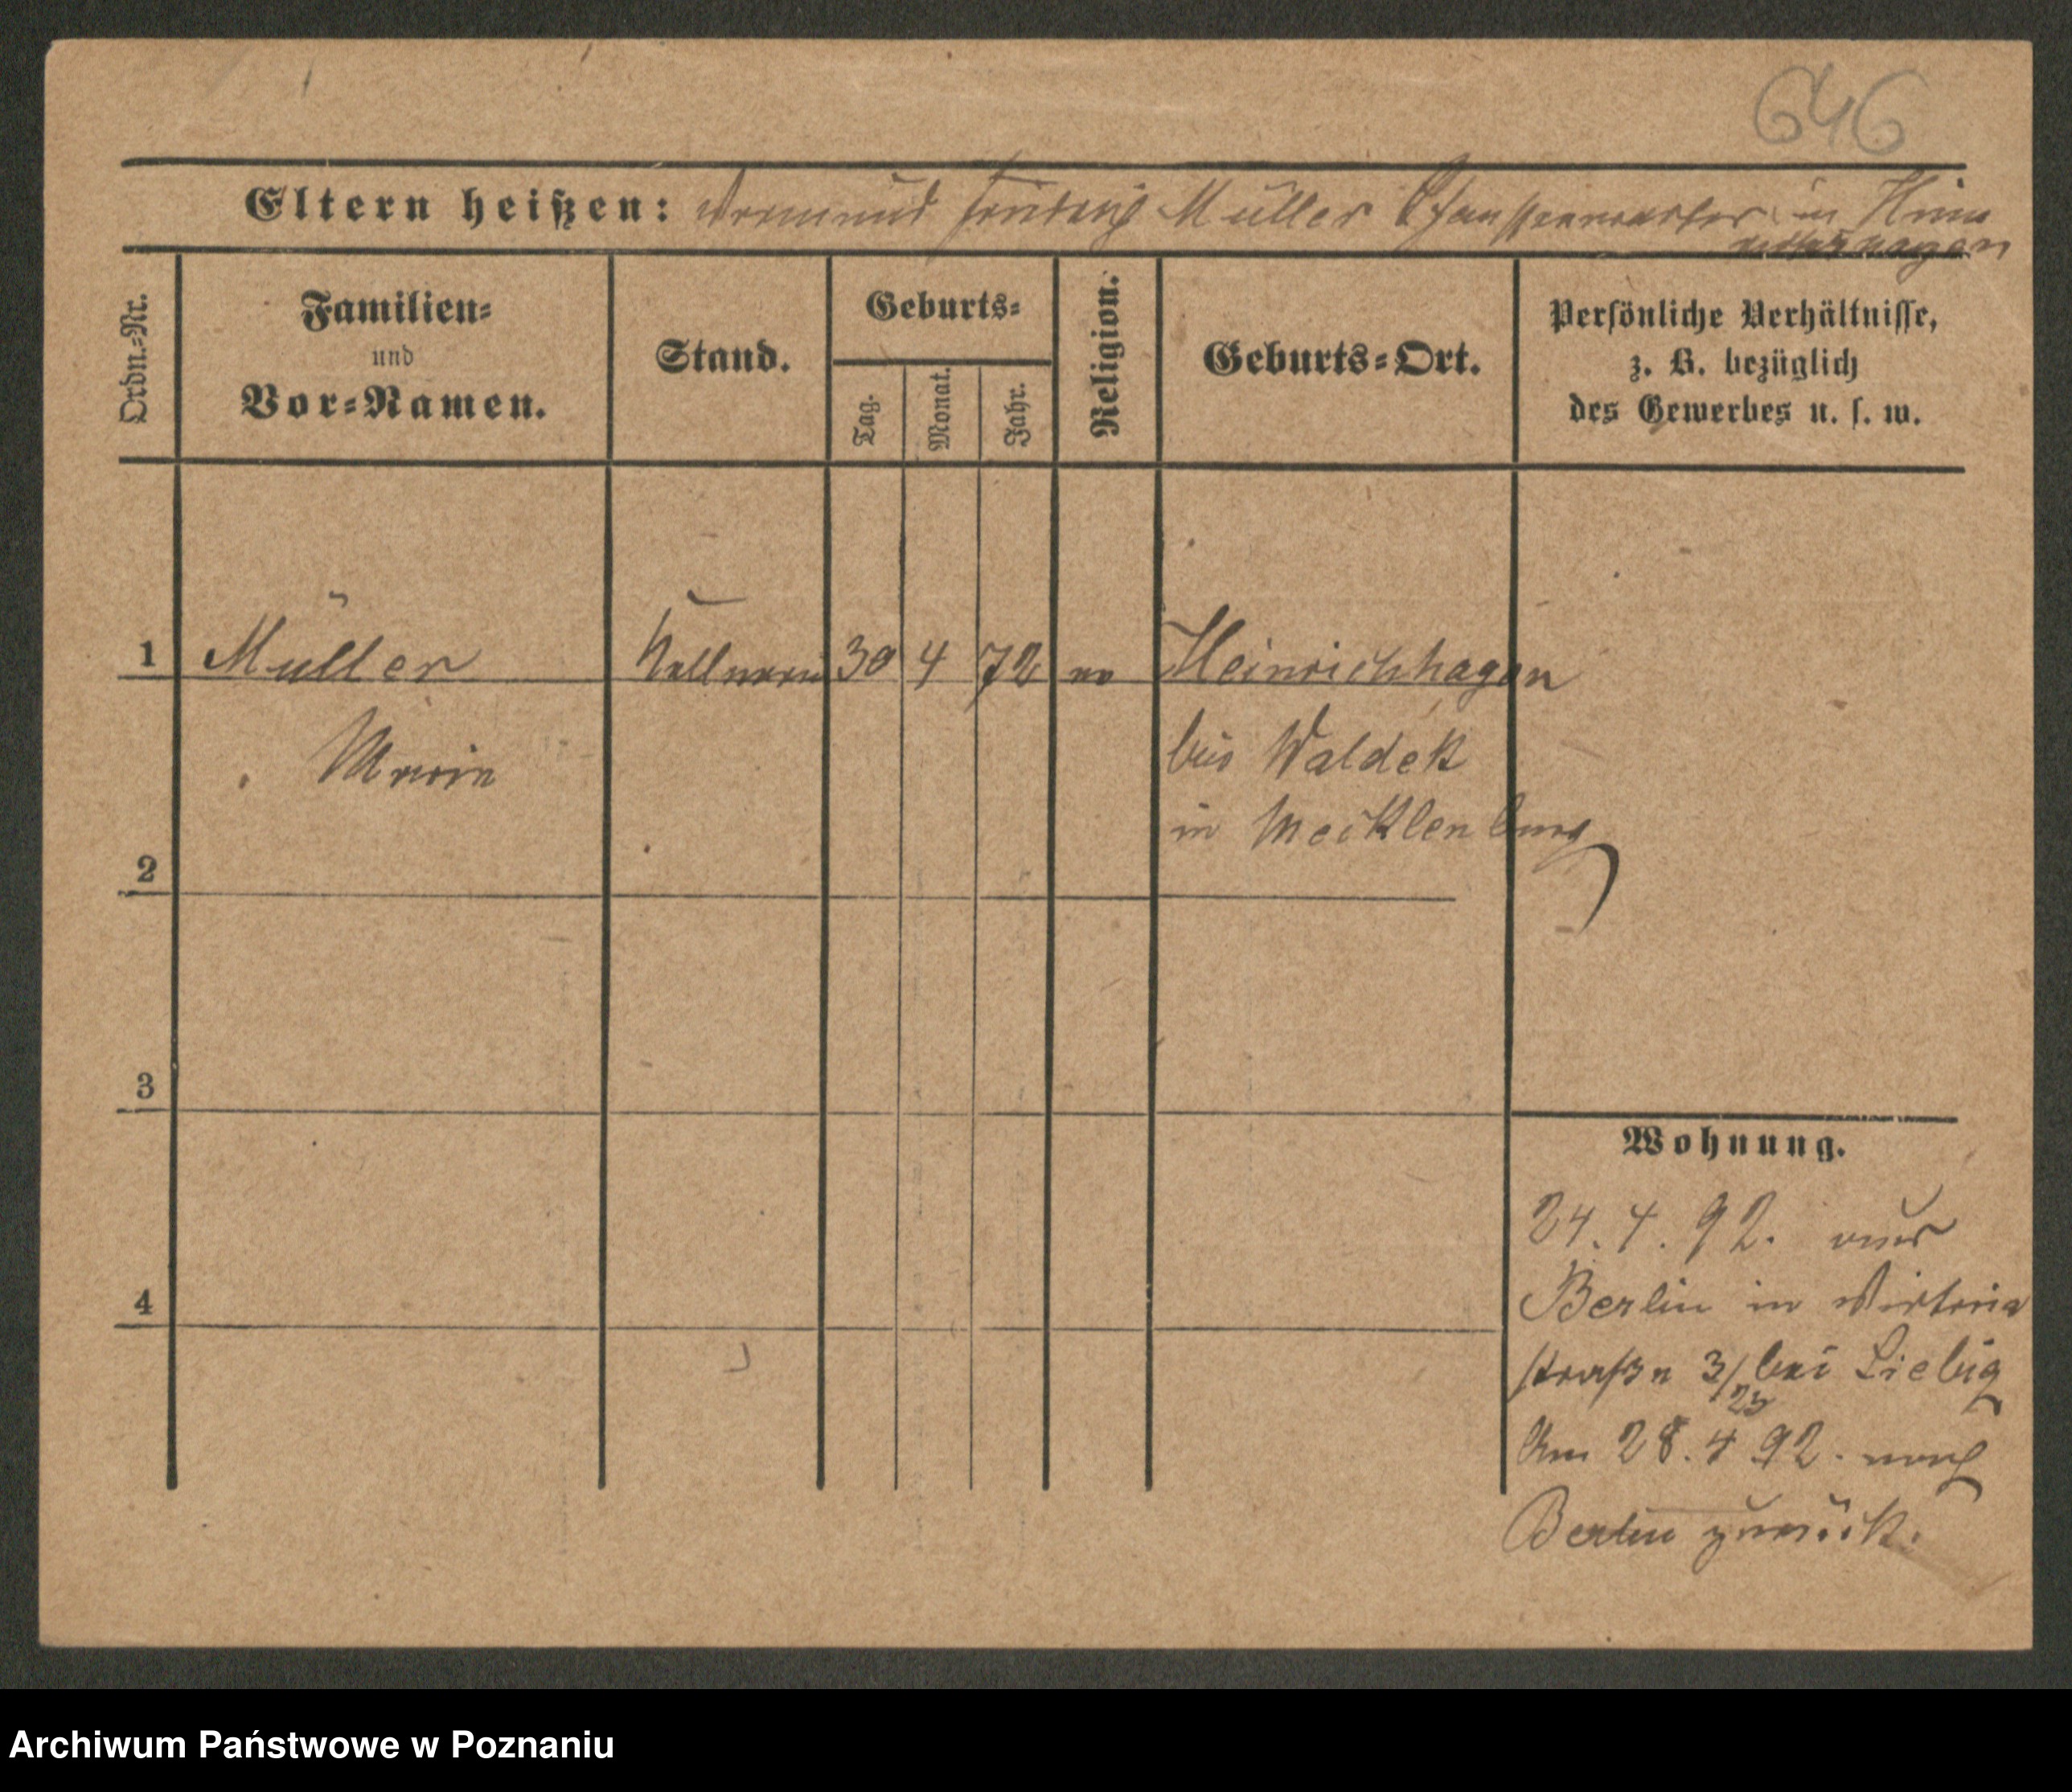 646
Eltern heißen: Vormund Friedrich Müller Chausseewärter in
Ordn.-Nr.
Familien-
und
Vor-Namen.
Stand.
Geburts-
Tag.
Monat.
Jahr.
Religion.
Geburts-Ort.
Persönliche Verhältnisse,
z. B. bezüglich
des Gewerbes u. s. w.
1 Müller Kellnerin 30 4 72 ev Heinrichhagen
Marie bei Waldek
in Mecklenburg
2
3
Wohnung.
24. 4. 92. aus
4
Berlin in Victoria
straße 3/23 bei Liebig
Am 28. 4 92. nach
Berlin zurück.
Archiwum Państwowe w Poznaniu